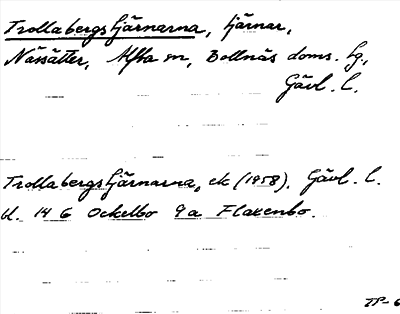 Trollabergstjärnarna, tjärnar,
Nässätter, Alfta sn, Bollnäs doms. hg.,
Gävl. l.
Trollabergstjärnarna, ek (1958). Gävl. l.
bl. 14 G Ockelbo 9a Flaxenbo.
TP-6